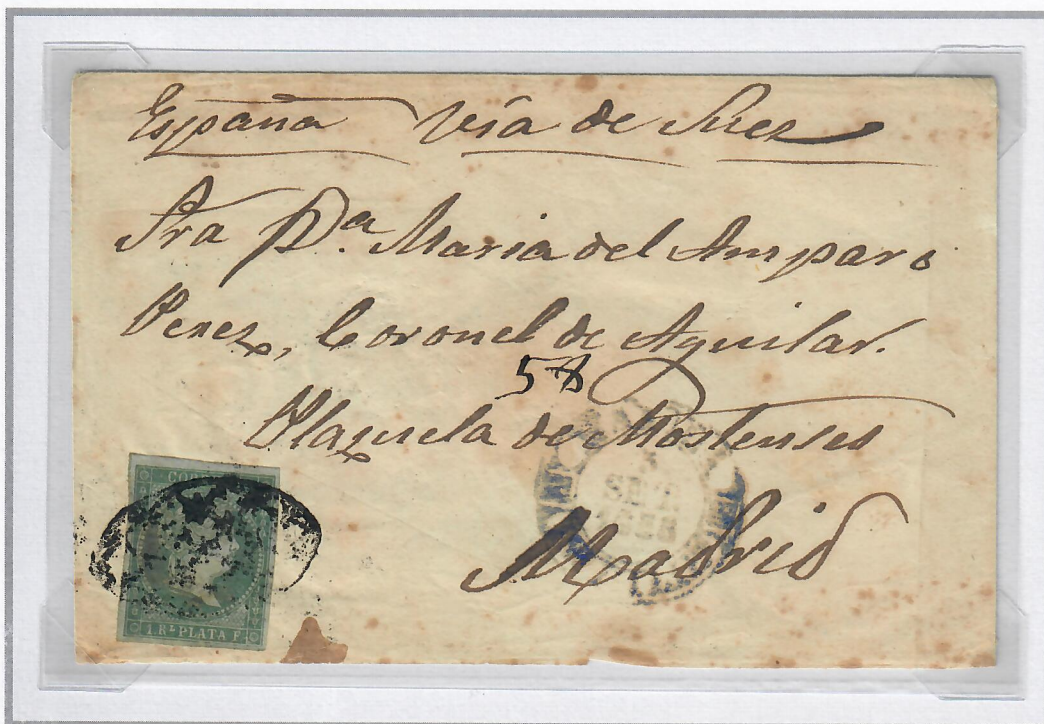 España Vía de Suez
Sra Dª. Maria del Amparo
Perez, Coronel de Aguilar.
58
Plazuela de Mostenses
Madrid
CORREOS
1 Rl PLATA F.